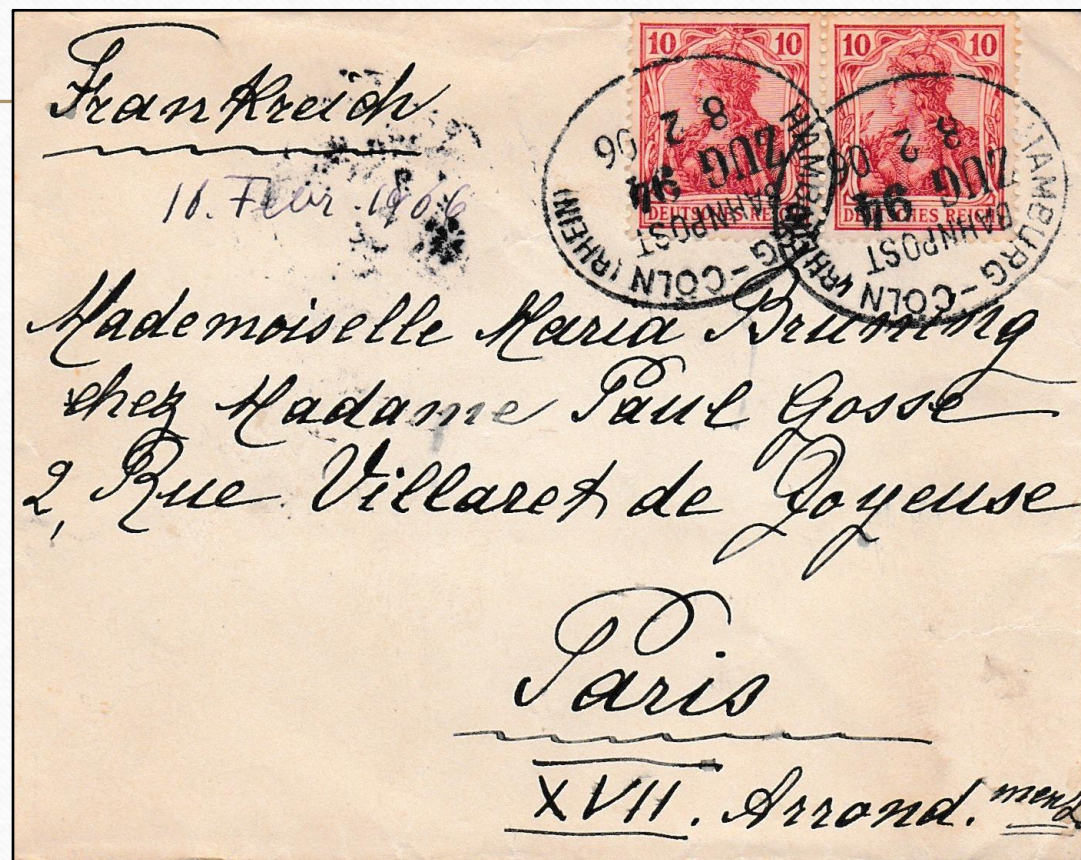 10 10 10 10
DEUTSCHES REICH DEUTSCHES REICH
HAMBURG - CÖLN (RHEIN)
BAHNPOST
ZUG 94
8 2 06
HAMBURG - CÖLN (RHEIN)
BAHNPOST
ZUG 94
8 2 06
Frankreich
Febr. 1906
Mademoiselle Maria Bruning
chez Madame Paul Gosse
2, Rue Villaret de Joyeuse
Paris
XVII. Arrond.ment